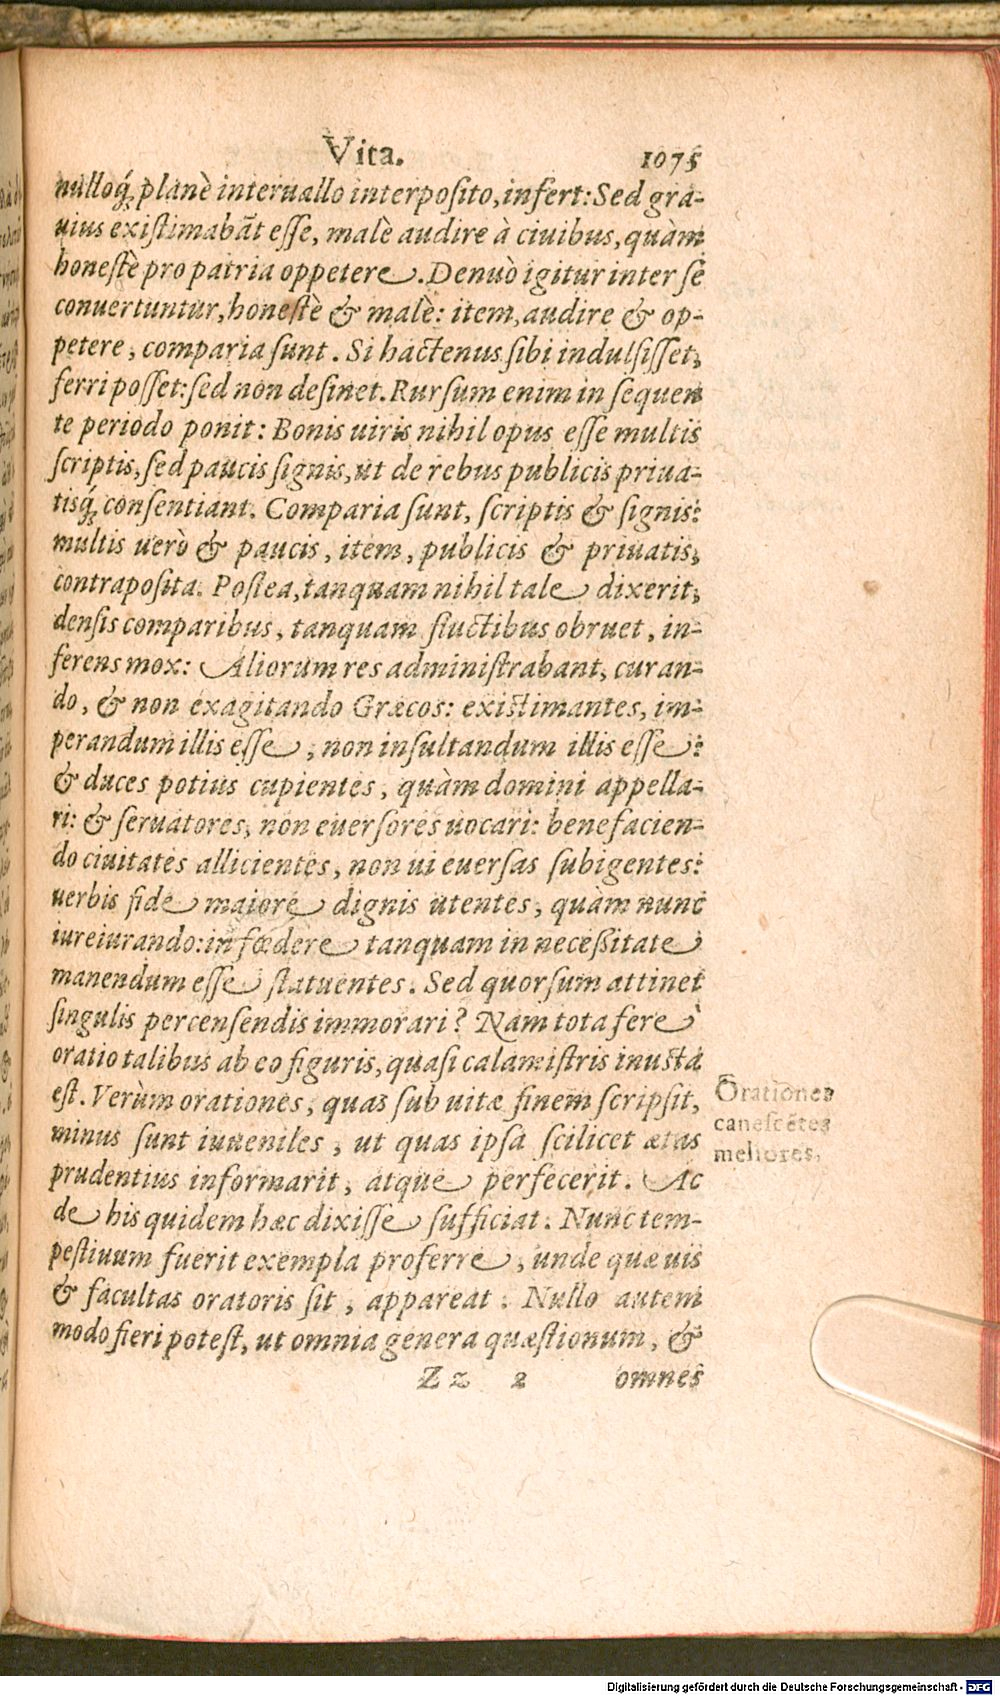 Vita. 1075
nulloq́; planè interuallo interposito, infert: Sed gra-
uius existimabāt esse, malè audire à ciuibus, quàm
honestè pro patria oppetere. Denuò igitur inter se
conuertuntur, honestè & malè: item, audire & op-
petere, comparia sunt. Si hactenus sibi indulsisset,
ferri posset: sed non desinet. Rursum enim in sequen
te periodo ponit: Bonis uiris nihil opus esse multis
scriptis, sed paucis signis, ut de rebus publicis priua-
tisq́; consentiant. Comparia sunt, scriptis & signis:
multis uerò & paucis, item, publicis & priuatis,
contraposita. Postea, tanquam nihil tale dixerit,
densis comparibus, tanquam fluctibus obruet, in-
ferens mox: Aliorum res administrabant, curan-
do, & non exagitando Græcos: existimantes, im-
perandum illis esse, non insultandum illis esse:
& duces potius cupientes, quàm domini appella-
ri: & seruatores, non euersores uocari: benefacien-
do ciuitates allicientes, non ui euersas subigentes:
uerbis fide maiore dignis utentes, quàm nunc
iureiurando: in fœdere tanquam in necessitate
manendum esse statuentes. Sed quorsum attinet
singulis percensendis immorari? Nam tota fere
oratio talibus ab eo figuris, quasi calamistris inusta
est. Verùm orationes, quas sub uitæ finem scripsit,
minus sunt iuueniles, ut quas ipsa scilicet ætas
prudentius informarit, atque perfecerit. Ac
de his quidem hæc dixisse sufficiat. Nunc tem-
pestiuum fuerit exempla proferre, unde quæ uis
& facultas oratoris sit, appareat. Nullo autem
modo fieri potest, ut omnia genera quæstionum, &
Zz 2 omnes
Orationes
canescētes
meliores.
Digitalisierung gefördert durch die Deutsche Forschungsgemeinschaft - DFG